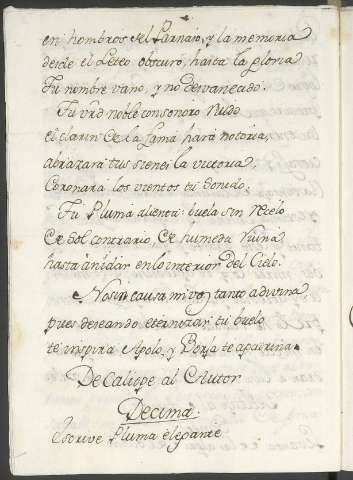 en hombros del Parnaso, y la memoria
desde el Leteo obscuro, hasta la gloria
Tu nombre vano, y no desvanecido.
Tu vrd noble con sonoro ruido
el clarin de la fama hará notoria,
abrazará tus sienes la victoria,
Coronará los vientos tu sonido:
Tu Pluma alienta: buela sin recelo
de Sol contrario, de humeda ruina
hasta anidar en lo interior del Cielo.
No sin causa mi voz tanto adivina
pues deseando eternizar tu buelo
te inspira Apolo, y Borja te apatrina.
De Caliope al Autor
Decima.
Escrive Pluma elegante